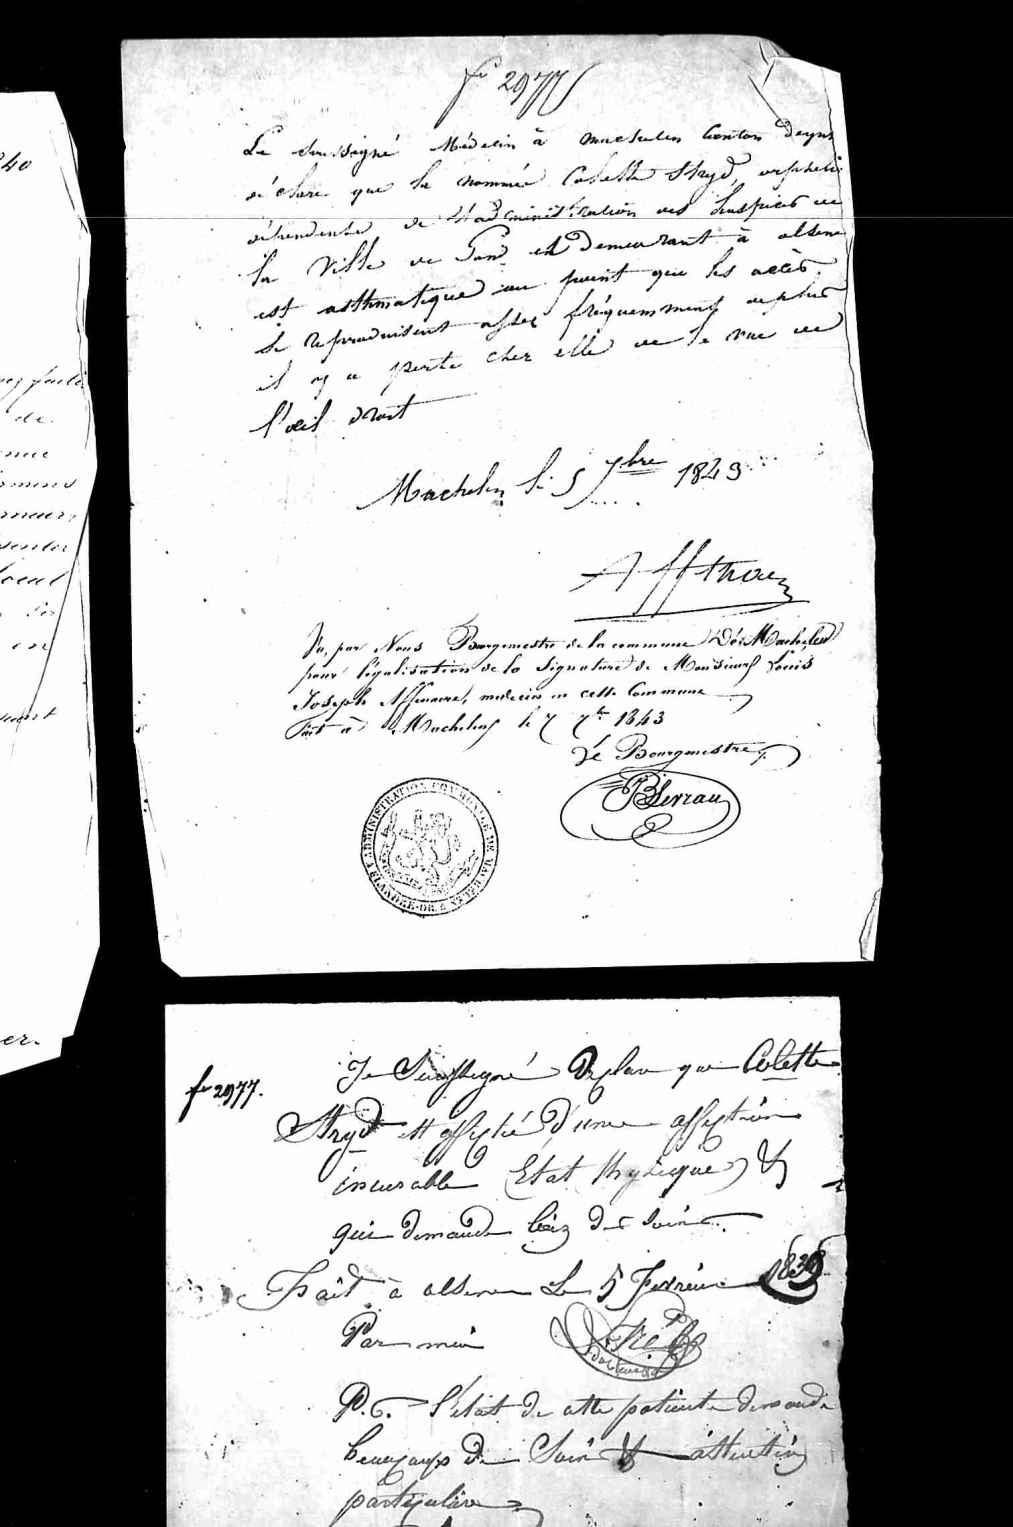 40
de
er.
fo 2977
Le Soussigné Médecin à machelen Canton deyns
déclare que la nommée Colette Stryd, orphelin
dépendente de l'administration des hospices de
la Ville de Gand et demeurant à olsene
est asthmatique au point que les accès
se reproduisent assez fréquemment de plus
il y a perte chez elle de la vue de
l'œil droit
Machelen le 5 7bre 1843
Vu, par Nous Bourgmestre de la commune De Machelen
pour légalisation de la Signature de Monsieur Louis
Joseph Affenaere, médecin en cette Commune
Fait à Machelen le 7 7bre 1843
Le Bourgmestre,
ADMINISTRATION COMMUNALE DE MACHELEN
fo 2977.
Je Soussigné Déclare que Colette
Stryd est affectée d'une affection
incurable (Etat thysique) &
qui demande bien des soins.
Fait à olsene Le 5 Fevrier 1838
Par moi
P.S. l'état de cette patiente demande
beaucoup de Soin & attention
particulière